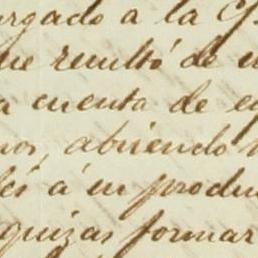 urgado a la C
ue resultó de u
a cuenta de e
nos, abriendo
les á su produ
quizas formar